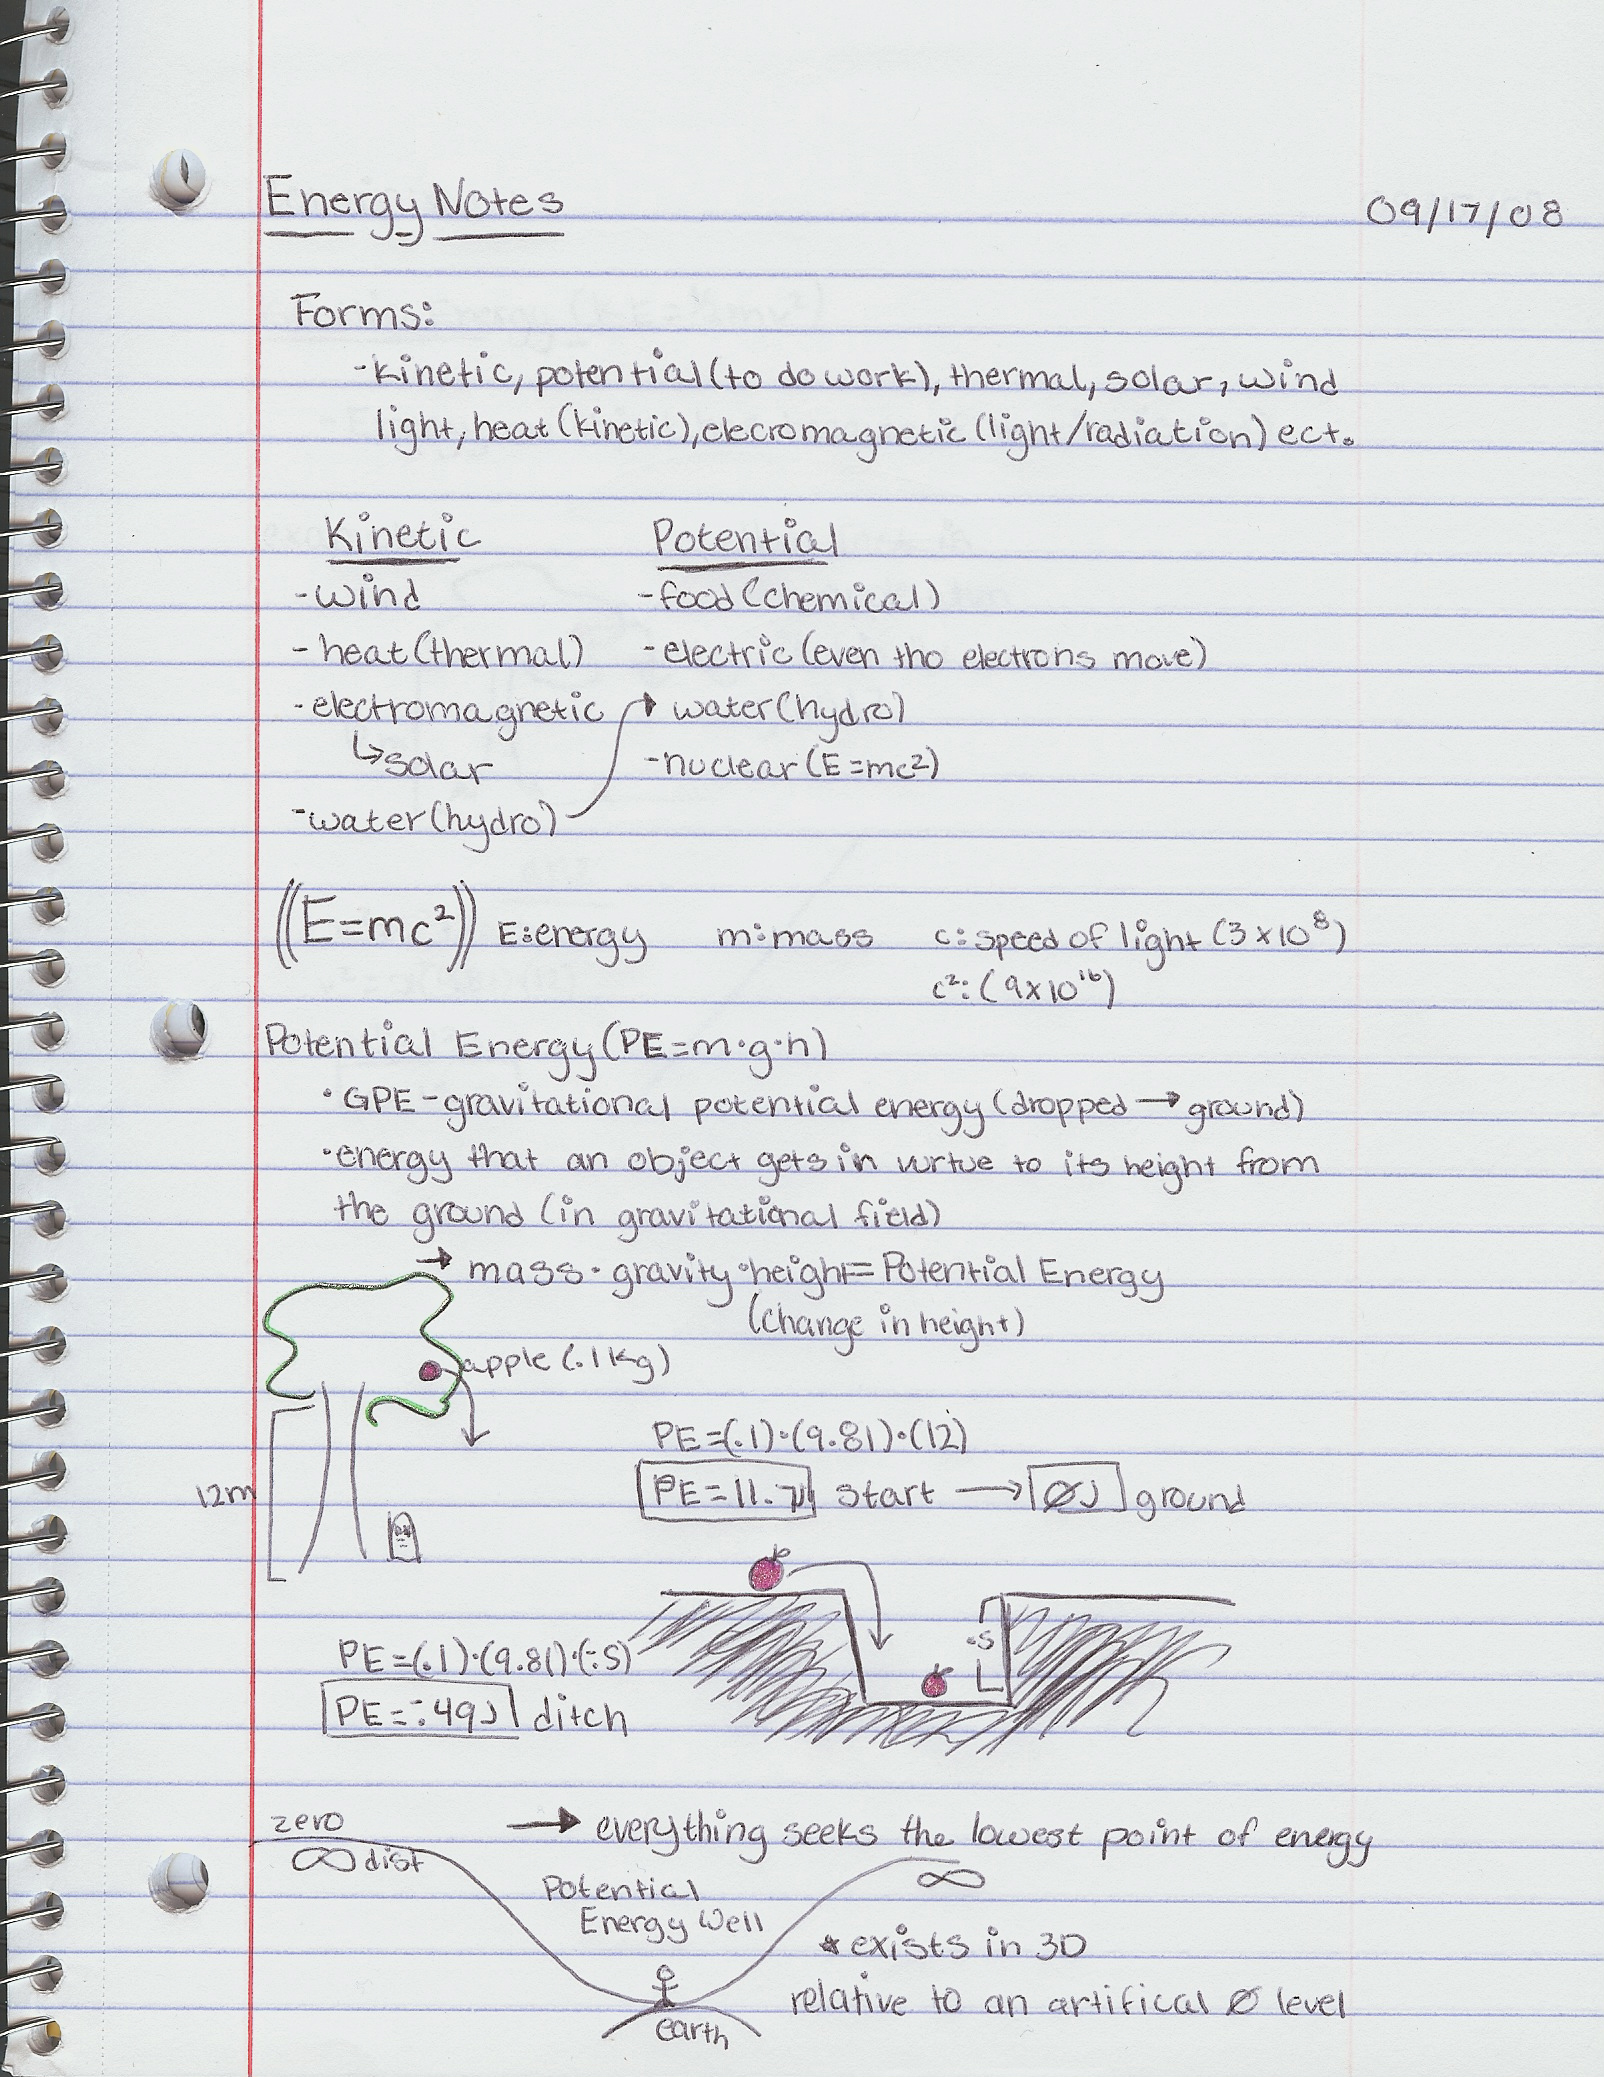 Energy Notes 09/17/08
Forms:
-kinetic, potential (to do work), thermal, solar, wind
light, heat (kinetic), elecromagnetic (light/radiation) ect.
Kinetic Potential
-wind -food (chemical)
-heat (thermal) -electric (even tho electrons move)
-electromagnetic → water (hydro)
↳solar -nuclear (E=mc²)
-water (hydro)
((E=mc²)) E:energy m:mass c:speed of light (3x10⁸)
c²:(9x10¹⁶)
Potential Energy (PE=m·g·h)
·GPE-gravitational potential energy (dropped → ground)
·energy that an object gets in virtue to its height from
the ground (in gravitational field)
→ mass·gravity·height=Potential Energy
(change in height)
apple (.1kg)
PE=(.1)·(9.81)·(12)
12m PE=11.7J start → ØJ ground
.5
PE=(.1)·(9.81)·(-.5)
PE=-.49J ditch
zero → everything seeks the lowest point of energy
∞ dist ∞
Potential
Energy Well
* exists in 3D
relative to an artifical Ø level
earth